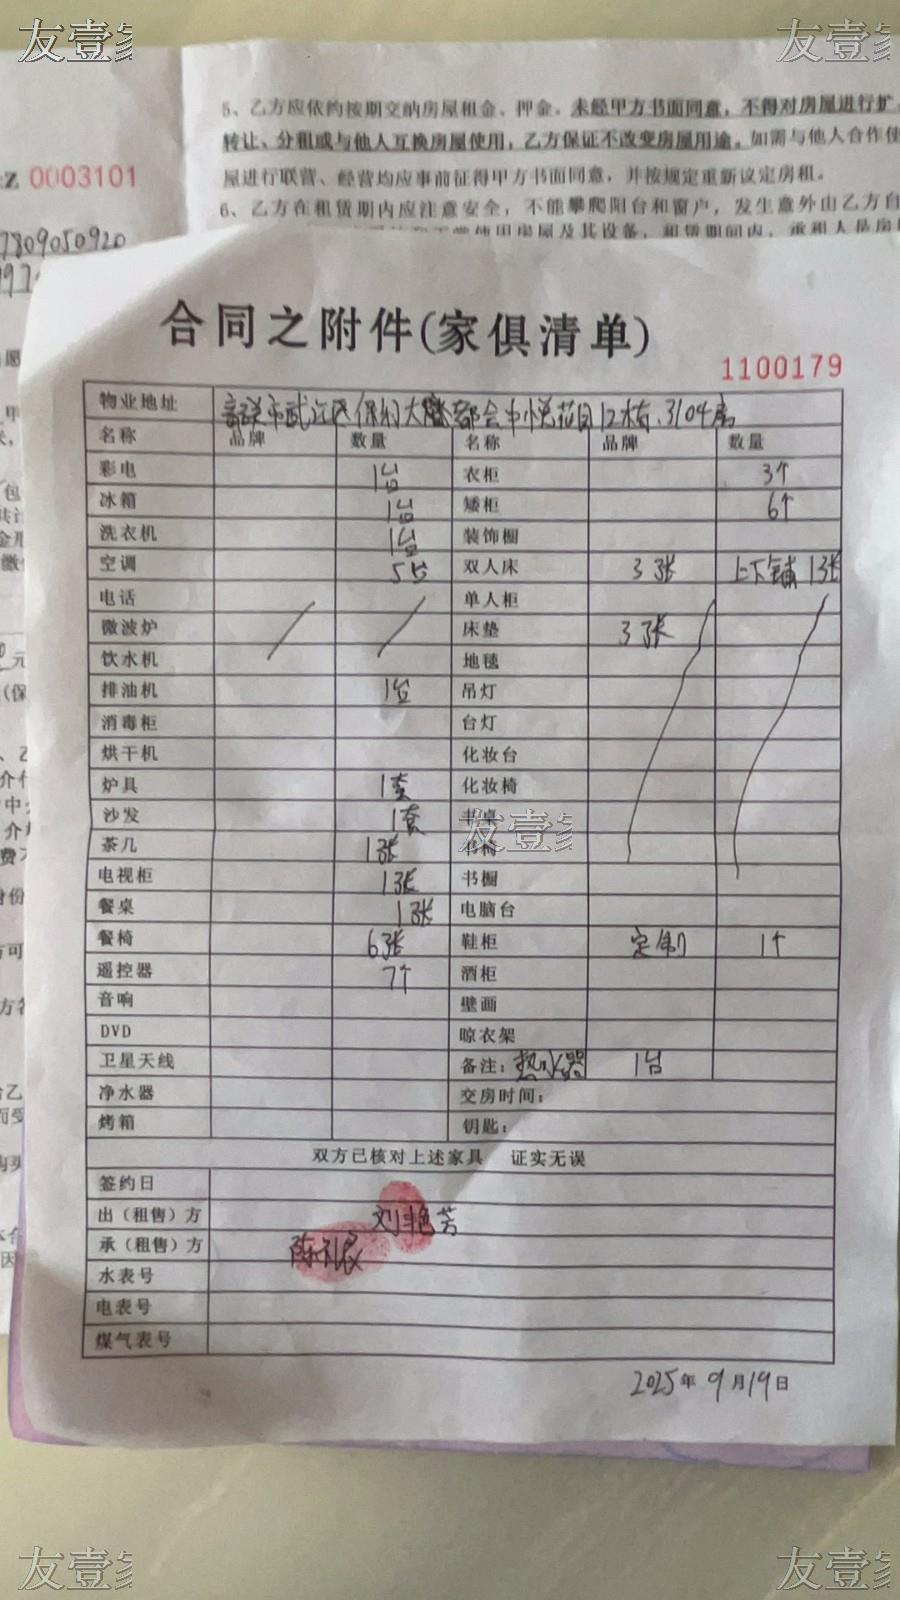 友壹家 友壹家
5、乙方应依约按期交纳房屋租金、押金。未经甲方书面同意，不得对房屋进行扩
转让、分租或与他人互换房屋使用，乙方保证不改变房屋用途。如需与他人合作使
屋进行联营、经营均应事前征得甲方书面同意，并按规定重新议定房租。
6、乙方在租赁期内应注意安全，不能攀爬阳台和窗户，发生意外由乙方自
Z 0003101
7809050920
合同之附件(家俱清单)
1100179
物业地址 韶关市武江区保利大都会中悦花园12栋.3104房
名称 品牌 数量 名称 品牌 数量
彩电 1台 衣柜 3个
冰箱 1台 矮柜 6个
洗衣机 1台 装饰橱
空调 5台 双人床 3张 上下铺1张
电话 单人柜
微波炉 床垫 3张
饮水机 地毯
排油机 1台 吊灯
消毒柜 台灯
烘干机 化妆台
炉具 1套 化妆椅
沙发 1套 书桌
茶几 1张 书椅
电视柜 1张 书橱
餐桌 1张 电脑台
餐椅 6张 鞋柜 定制 1个
遥控器 7个 酒柜
音响 壁画
DVD 晾衣架
卫星天线 备注：热水器 1台
净水器 交房时间：
烤箱 钥匙：
双方已核对上述家具 证实无误
签约日
出（租售）方 刘艳芳
承（租售）方
水表号
电表号
煤气表号
2025年9月19日
友壹家
友壹家 友壹家